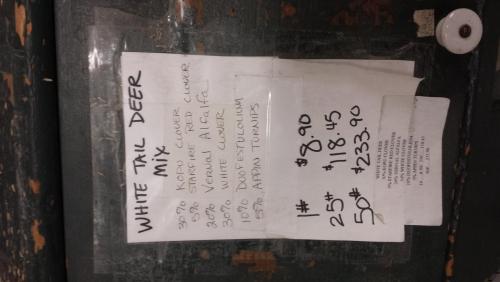 WHITE TAIL DEER
MIX
30% KOPU CLOVER
5% STARFIRE RED CLOVER
20% Vernal Alfalfa
30% WHITE CLOVER
10% DUO FESTULOLIUM
5% APPIN TURNIPS
1# $8.90
25# $118.45
50# $233.90
WHITE TAIL DEER